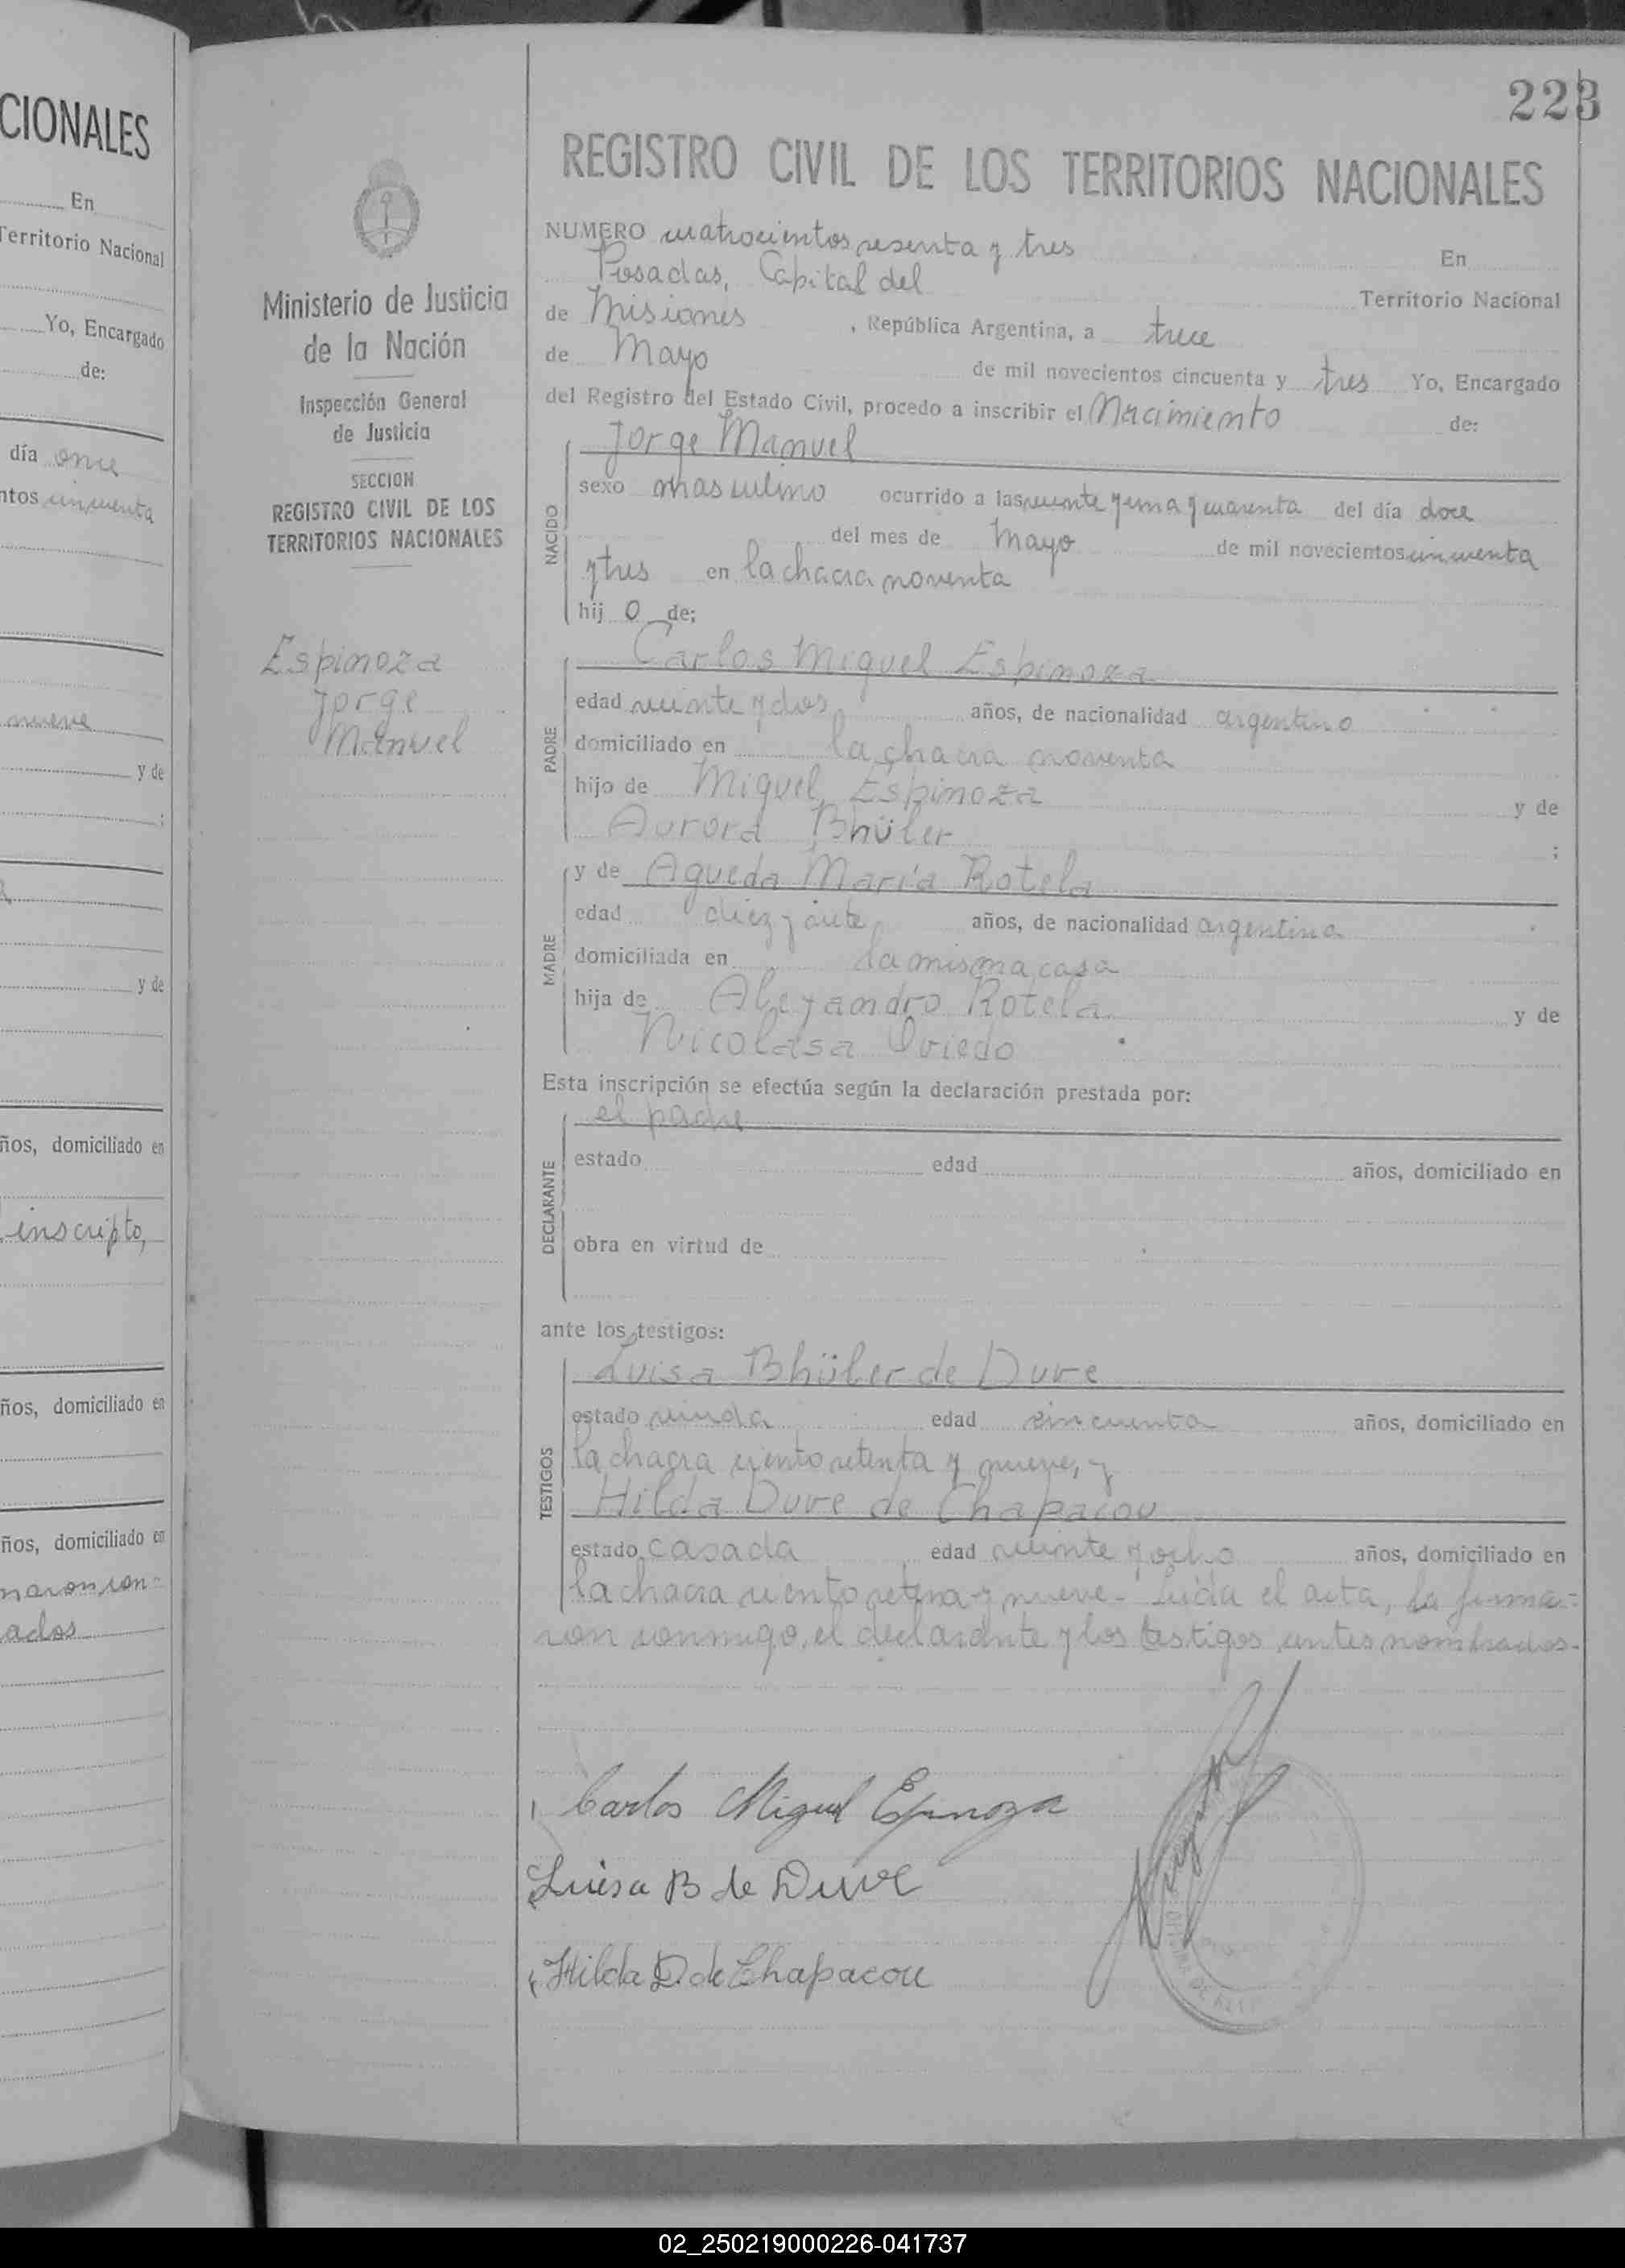 CIONALES
En
Territorio Nacional
Yo, Encargado
de:
día once
ntos cincuenta
nueve
y de
;
y de
ños, domiciliado en
inscripto,
ños, domiciliado en
ños, domiciliado en
maron con-
ados
223
Ministerio de Justicia
de la Nación
Inspección General
de Justicia
SECCION
REGISTRO CIVIL DE LOS
TERRITORIOS NACIONALES
Espinoza
Jorge
Manuel
REGISTRO CIVIL DE LOS TERRITORIOS NACIONALES
NUMERO cuatrocientos sesenta y tres En
Posadas, Capital del Territorio Nacional
de Misiones , República Argentina, a trece
de Mayo de mil novecientos cincuenta y tres Yo, Encargado
del Registro del Estado Civil, procedo a inscribir el Nacimiento de:
NACIDO
Jorge Manuel
sexo masculino ocurrido a las veinte y una y cuarenta del día doce
del mes de Mayo de mil novecientos cincuenta
y tres en la chacra noventa
hij o de;
PADRE
Carlos Miguel Espinoza
edad veinte y dos años, de nacionalidad argentino
domiciliado en la chacra noventa
hijo de Miguel Espinoza y de
Aurora Bhüler ;
MADRE
y de Agueda María Rotela
edad diez y siete años, de nacionalidad argentina
domiciliada en la misma casa
hija de Alejandro Rotela y de
Nicolasa Oviedo
Esta inscripción se efectúa según la declaración prestada por:
DECLARANTE
el padre
estado edad años, domiciliado en
obra en virtud de
ante los testigos:
TESTIGOS
Luisa Bhüler de Duve
estado viuda edad cincuenta años, domiciliado en
la chacra ciento setenta y nueve, y
Hilda Duve de Chapacou
estado casada edad veinte y ocho años, domiciliado en
la chacra ciento setena y nueve - Leída el acta, la firma-
ron conmigo, el declarante y los testigos antes nombrados.-
Carlos Miguel Espinoza
Luisa B de Duve
Hilda D de Chapacou
02_250219000226-041737